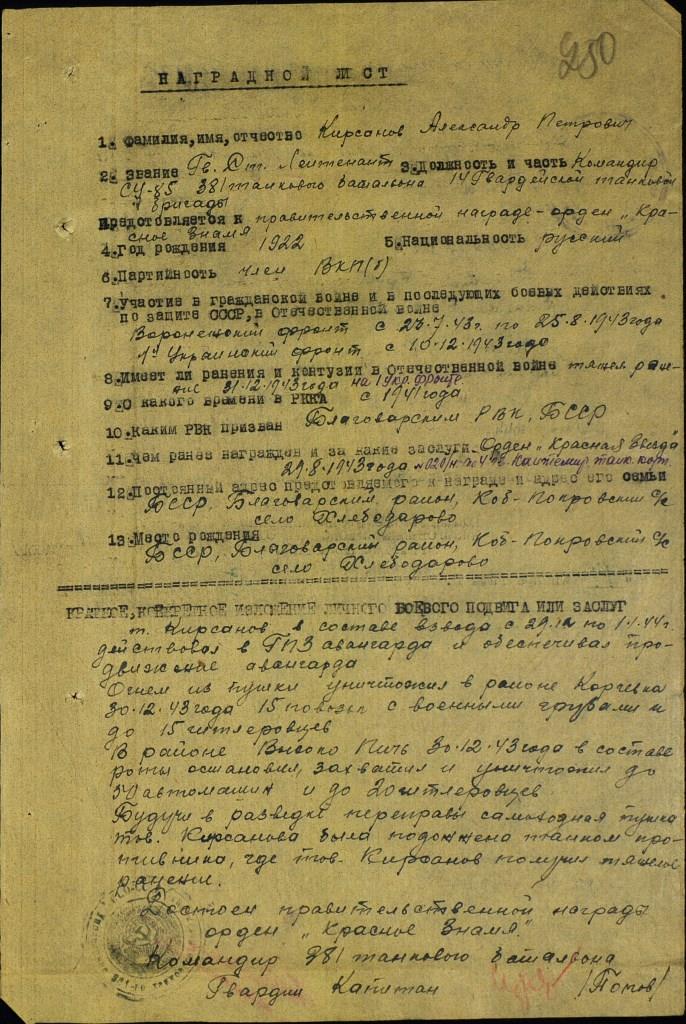 250
НАГРАДНОЙ ЛИСТ
1. Фамилия, имя, отчество Кирсанов Александр Петрович
2. Звание Гв. Ст. Лейтенант 3. Должность и часть Командир
СУ-85 381 танкового баталвона 14 Гвардейской танковой
бригады
Представляется к правительственной награде - орден „Кра-
сное Знамя"
4. Год рождения 1922 5. Национальность русский
6. Партийность член ВКП(б)
7. Участие в гражданской войне и в последующих боевых действиях
по защите СССР, в Отечественной войне
Воронежский фронт с 23.7.43г. по 25.8.1943года
1й Украинский фронт с 10.12.1943года
8. Имеет ли ранения и контузии в Отечественной войне тяжел. ране-
ние 31.12.1943года на 1 Укр. фронте
9. С какого времени в РККА с 1941года
10. Каким РВК призван Благоварским РВК, БССР
11. Чем ранее награжден и за какие заслуги Орден „Красная Звезда"
29.8.1943года 4 Гв. Кантемир. танк. корп.
12. Постоянный адрес представляемого к награде и адрес его семьи
БССР, Благоварский район, Коб-Покровский с/с
село Хлебодарово
13. Место рождения
БССР, Благоварский район, Коб-Покровский с/с
село Хлебодарово
КРАТКОЕ, КОНКРЕТНОЕ ИЗЛОЖЕНИЕ ЛИЧНОГО БОЕВОГО ПОДВИГА ИЛИ ЗАСЛУГ
т. Кирсанов в составе взвода с 29.12 по 1.1.44г.
действовал в ГПЗ авангарда и обеспечивал про-
движение авангарда
Огнем из пушки уничтожил в районе
30.12.43года 15 повозок с военными грузами и
до 15 гитлеровцев
В районе Высоко Пичь 30.12.43года в составе
роты остановил, захватил и уничтожил до
50 автомашин и до 20 гитлеровцев
Будучи в разведке переправы самоходная пушка
тов. Кирсанова была подожжена танком про-
тивника, где тов. Кирсанов получил тяжелое
ранение.
Достоен правительственной награды
орден „Красное Знамя"
Командир 381 танкового баталвона
Гвардии Капитан /Попов/